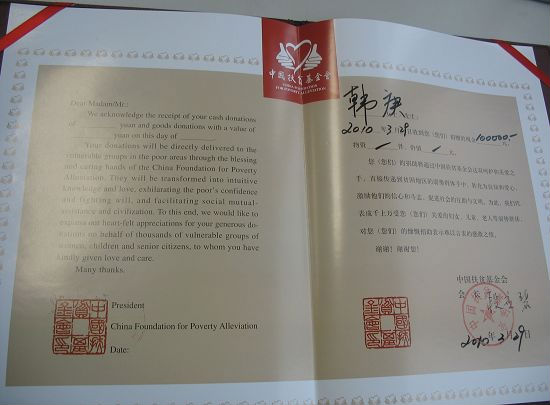 中国扶贫基金会
CHINA FOUNDATION
FOR POVERTY ALLEVIATION
Dear Madam/Mr.:
We acknowledge the receipt of your cash donations
of yuan and goods donations with a value of
yuan on this day of
Your donations will be directly delivered to the
vulnerable groups in the poor areas through the blessing
and caring hands of the China Foundation for Poverty
Alleviation. They will be transformed into intuitive
knowledge and love, exhilarating the poor's confidence
and fighting will, and facilitating social mutual-
assistance and civilization. To this end, we would like to
express our heart-felt appreciations for your generous do-
nations on behalf of thousands of vulnerable groups of
women, children and senior citizens, to whom you have
kindly given love and care.
Many thanks.
President
China Foundation for Poverty Alleviation
Date:
韩庚
2010 3 29 日收到您（您们）捐赠的现金 100000.- 元；
物资 一 件，价值 一 元。
您（您们）的捐赠将通过中国扶贫基金会这双呵护和关爱之
手，直接传递到贫困地区的弱势群体手中，转化为知识和爱心，
激励他们的信心和斗志，促进社会的互助与文明。为此，我们代
表成千上万受您（您们）关爱的妇女、儿童、老人等弱势群体，
对您（您们）的慷慨捐助表示难以言表的感激之情。
谢谢！谢谢您！
中国扶贫基金会
会 长
2010 年 3 月 29 日